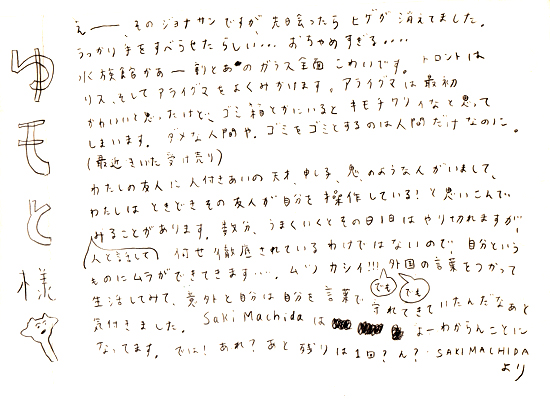 ゆモと様
え——、そのジョナサンですが、先日会ったらヒゲが消えてました。
うっかり手をすべらせたらしい… おちゃめすぎる….
水族館かあー 割とあのガラス全面こわいです。トロントは
リス、そしてアライグマをよくみかけます。アライグマは最初
かわいいと思ったけど、ゴミ箱とかにいるとキモチワリィなと思って
しまいます。ダメな人間や、ゴミをゴミとするのは人間だけなのに。
(最近きいた受け売り)
わたしの友人に人付きあいの天才、申し子、鬼のような人がいまして、
わたしはときどきその友人が自分を操作している!と思いこんで
みることがあります。数分、うまくいくとその日1日はやり切れますが、
人と話して 何せ徹底されているわけではないので、自分という
ものにムラができてきます…. ムヅカシイ!!! 外国の言葉をつかって
生活してみて、意外と自分は自分を言葉で でも でも 守れてきていたんだなあと
気付きました。Saki Machidaは よーわからんことに
なってます。では! あれ?あと残りは1回?ん?・SAKI MACHIDA
より